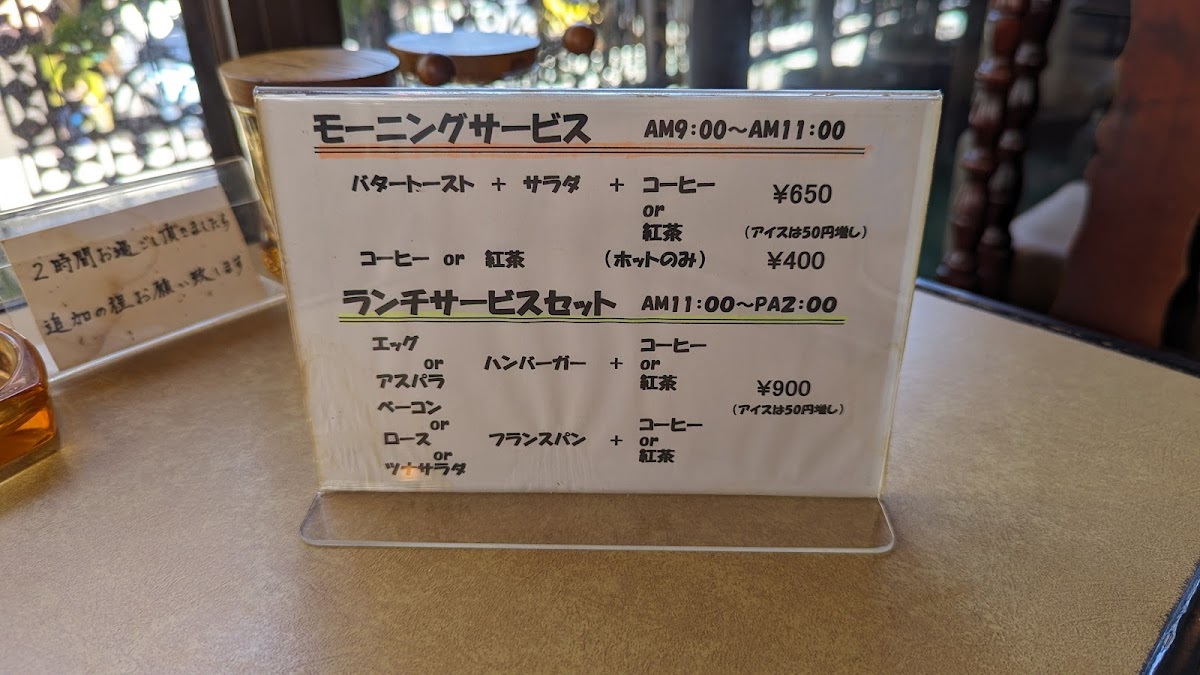 モーニングサービス AM9:00~AM11:00
バタートースト + サラダ + コーヒー ¥650
or
紅茶 (アイスは50円増し)
コーヒー or 紅茶 (ホットのみ) ¥400
ランチサービスセット AM11:00~PA2:00
エッグ コーヒー
or ハンバーガー + or
アスパラ 紅茶 ¥900
(アイスは50円増し)
ベーコン コーヒー
or
ロース フランスパン + or
or 紅茶
ツナサラダ
2時間お過ごし頂きましたら
追加の程お願い致します